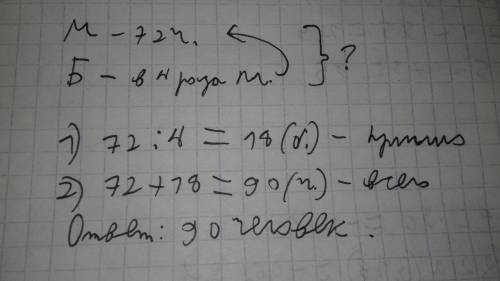 М – 72 ч.
Б – в 4 раза м. } ?
1) 72 : 4 = 18 (б.) –
2) 72 + 18 = 90 (ч.) – всего
Ответ: 90 человек.